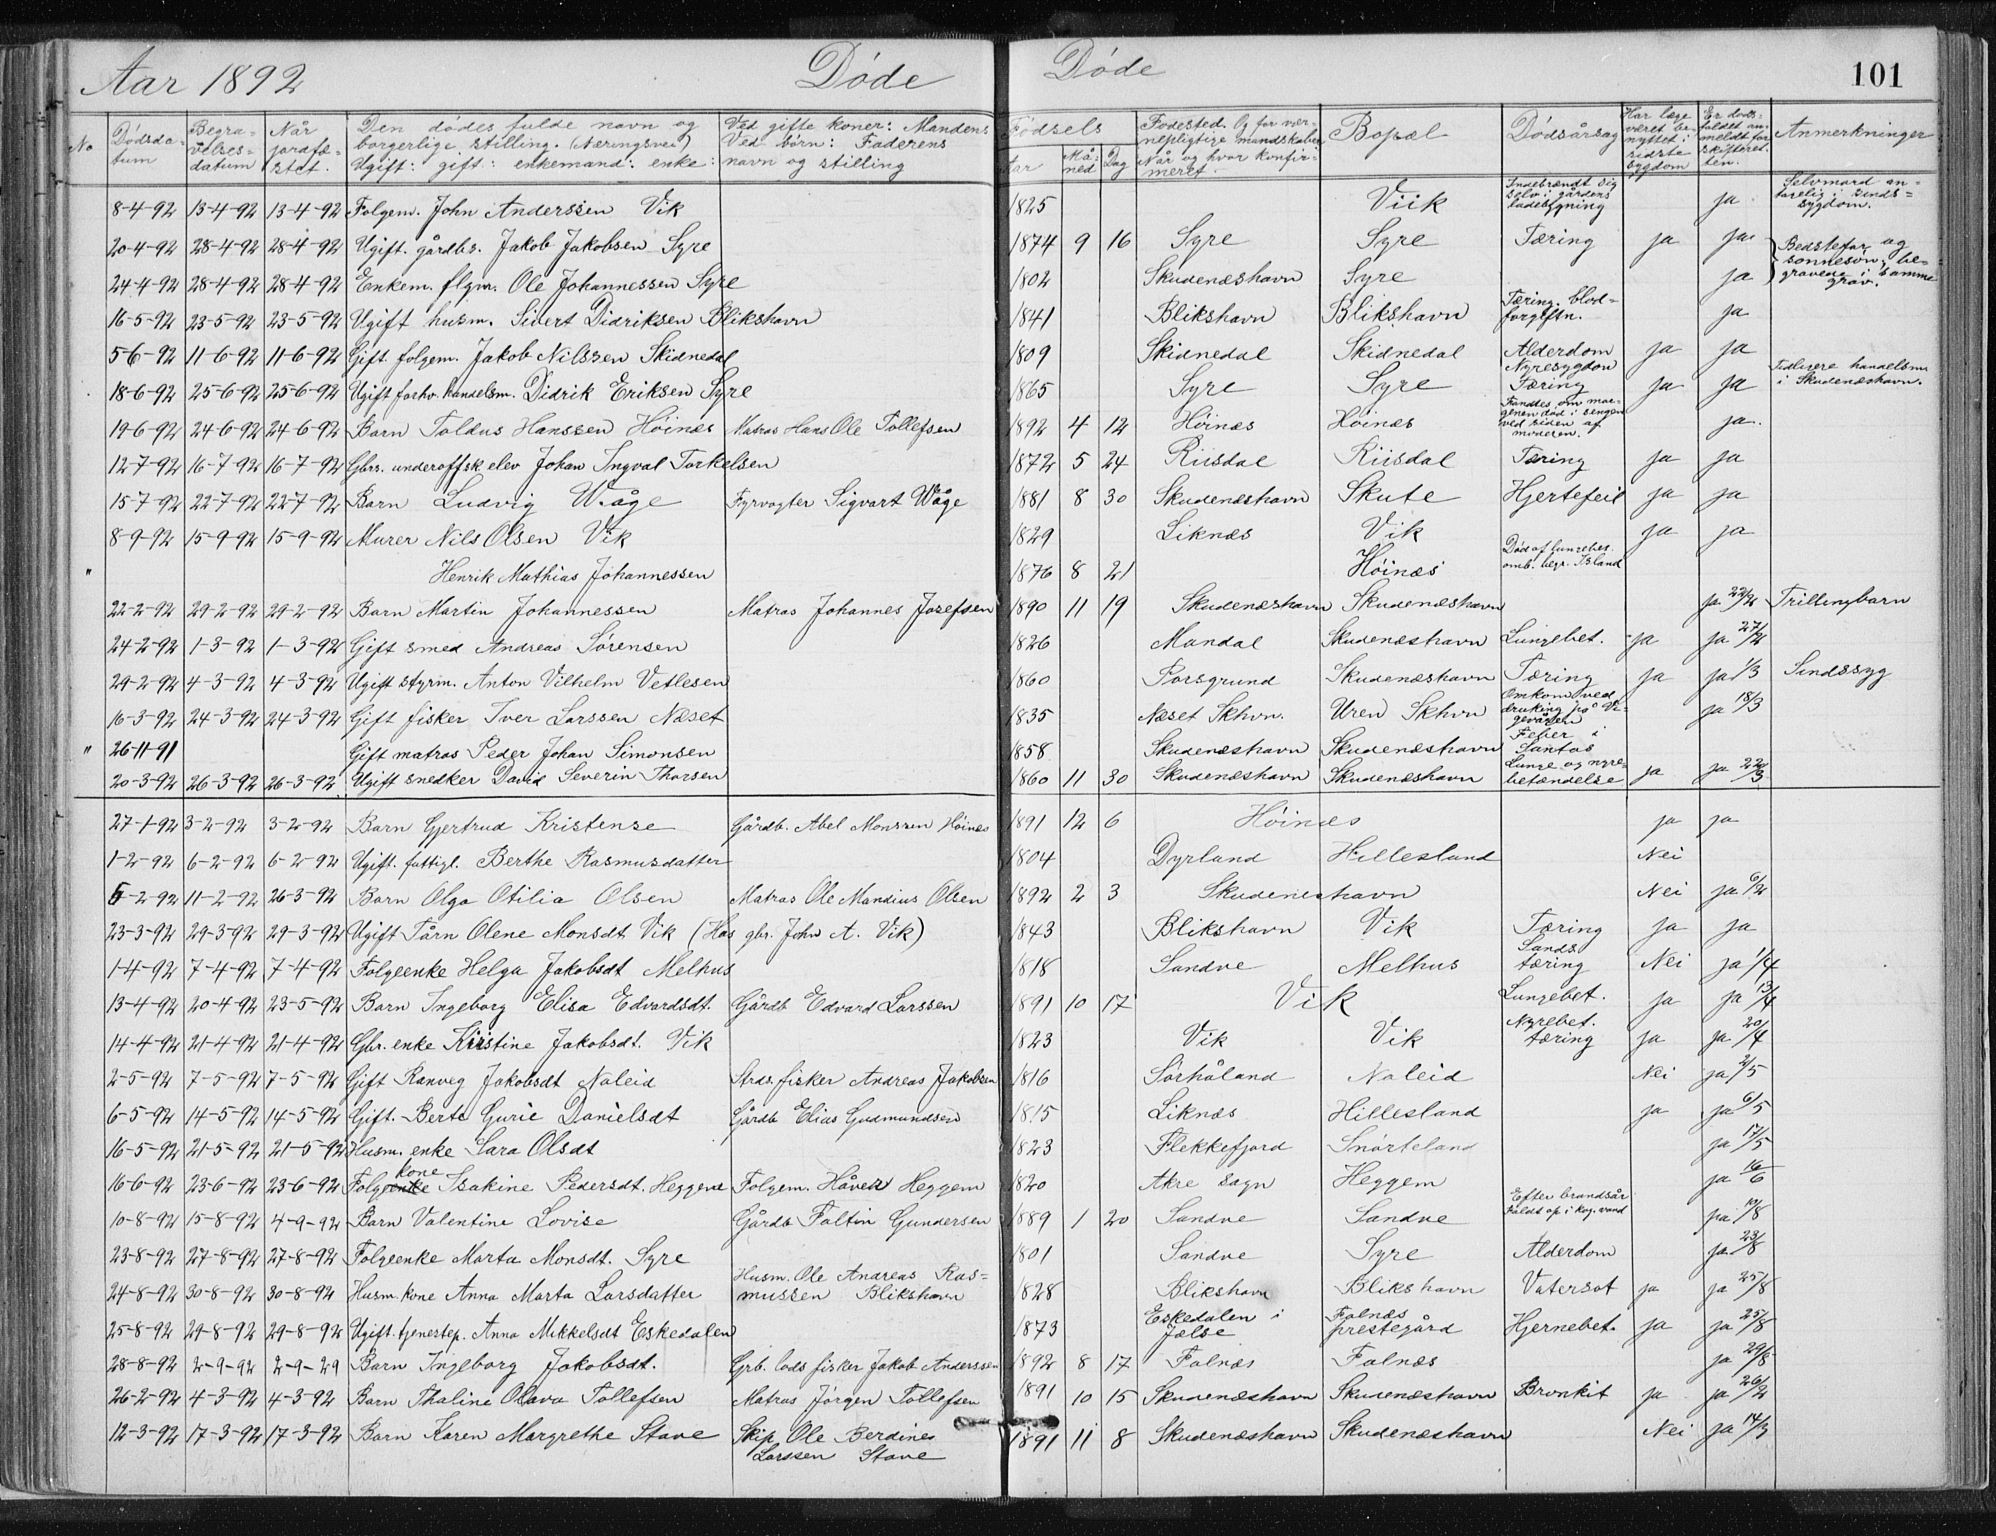 Aar 1892 Døde Døde 101
No Dødsdatum Begravelsesdatum Når jordfæstet. Den dødes fulde navn og borgerlige stilling. (Næringsvei) Ugift: gift: enkemand: enke: Ved gifte koner: Mandens Ved børn: Faderens navn og stilling Fødsels Aar Måned Dag Fødested. Og for værnepligtige mandskaber Når og hvor konfirmeret. Bopæl Dødsårsag Har læge været benyttet i sidste sygdom Er dødsfaldet anmeldt for skifteretten. Anmerkninger
8-4-92 13-4-92 13-4-92 Folgem. John Anderssen Vik 1825 Viik Indebrændt sig selv i gårdens ladebygning ja Selvmord antagelig i sindssygdom.
20-4-92 28-4-92 28-4-92 Ugift. gårdbs. Jakob Jakobsen Syre 1874 9 16 Syre Syre Tæring ja ja Bedstefar og sønnesøn, begravene i samme grav.
24-4-92 28-4-92 28-4-92 Enkem. flgm. Ole Johannessen Syre 1802 Skudenæshavn Syre ja
16-5-92 23-5-92 23-5-92 Ugift husm. Sivert Didriksen Blikshavn 1841 Blikshavn Blikshavn Tæring. blodforgiftn. ja
5-6-92 11-6-92 11-6-92 Gift folgem. Jakob Nilssen Skidnedal 1809 Skidnedal Skidnedal Alderdom ja ja
18-6-92 25-6-92 25-6-92 Ugift forhv. handelsm. Didrik Eriksen Syre 1865 Syre Syre Nyresygdom Tæring ja ja Tidligere handelsm i Skudenæshavn.
19-6-92 24-6-92 24-6-92 Barn Toldus Hanssen Høinæs Matros Hans Ole Tollefsen 1892 4 12 Høinæs Høinæs Fandtes om morgenen død i sengen ved siden af moderen. ja.
12-7-92 16-7-92 16-7-92 Gbrs. underoffsk elev Johan Ingval Torkelsen 1872 5 24 Riisdal Riisdal Tæring ja ja
15-7-92 22-7-92 22-7-92 Barn Ludvig Wåge Fyrvogter Sigvart Wåge 1881 8 30 Skudenæshavn Skute Hjertefeil ja ja
8-9-92 15-9-92 15-9-92 Murer Nils Olsen Vik 1829 Liknæs Vik ja ja
" Henrik Mathias Johannessen 1876 8 21 Høinæs Død af lungebet. omb. begr. Island
22-2-92 29-2-92 29-2-92 Barn Martin Johannessen Matros Johannes Josefsen 1890 11 19 Skudenæshavn Skudenæshavn ja 22/2 Trillingbarn
24-2-92 1-3-92 1-3-92 Gift smed Andreas Sørensen 1826 Mandal Skudenæshavn Lungebet. ja ja 27/2
29-2-92 4-3-92 4-3-92 Ugift styrm. Anton Vilhelm Vetlesen 1860 Porsgrund Skudenæshavn Tæring ja ja 1/3 Sindssyg
16-3-92 24-3-92 24-3-92 Gift fisker Iver Larssen Næset 1835 Næset Skhvn. Uren Skhvn Omkom ved drukning på Vigevågen ja 18/3
" 26-11-91 Gift matros Peder Johan Simonsen 1858 Skudenæshavn Skudenæshavn Feber i Santos
20-3-92 26-3-92 26-3-92 Ugift snedker David Severin Thorsen 1860 11 30 Skudenæshavn Skudenæshavn Lunge og nyrebetændelse ja ja 22/3
27-1-92 3-2-92 3-2-92 Barn Gjertrud Kristense Gårdb. Abel Monssen Høinæs 1891 12 6 Høinæs ja ja
1-2-92 6-2-92 6-2-92 Ugift. fattigl. Berthe Rasmusdatter 1804 Dyrland Hillesland Nei
6-2-92 11-2-92 26-3-92 Barn Olga Otilia Olsen Matros Ole Mandius Olsen 1892 2 3 Skudeneshavn Nei ja 6/2
23-3-92 29-3-92 29-3-92 Ugift Tårn Olene Monsdt Vik (Hos gbr. John A. Vik) 1843 Blikshavn Vik Tæring ja ja
1-4-92 7-4-92 7-4-92 Folgeenke Helga Jakobsdt Melhus 1818 Sandve Melhus Sands tæring Nei ja 1/4
13-4-92 20-4-92 23-5-92 Barn Ingeborg Elisa Edvardsdt. Gårdb Edvard Larssen 1891 10 17 Vik Lungebet. ja ja 13/4
14-4-92 21-4-92 21-4-92 Gbr. enke Kristine Jakobsdt. Vik 1823 Vik Vik Nyrebet. tæring ja ja 20/4
2-5-92 7-5-92 7-5-92 Gift Ranveg Jakobsdt Naleid Strds. fisker Andreas Jakobsen 1816 Sørhåland Naleid Nei ja 2/5
6-5-92 14-5-92 14-5-92 Gift. Berta Gurie Danielsdt Gårdb Elias Gudmundsen 1815 Liknæs Hillesland ja ja 6/5
16-5-92 21-5-92 21-5-92 Husm. enke Sara Olsdt 1823 Flekkefjord Snørteland ja 17/5
16-6-92 23-6-92 23-6-92 Folgeenke kone Isakine Pedersdt. Heggene Folgem. Håven Heggem 1820 Akre sogn Heggem ja 16/6
10-8-92 15-8-92 4-9-92 Barn Valentine Lovise Gårdb Faltin Gundersen 1889 1 20 Sandve Sandve Efter brandsår Faldt op i kog. vand ja 10/8
23-8-92 27-8-92 27-8-92 Folgeenke Marta Monsdt. Syre 1801 Sandve Syre Alderdom ja 23/8
24-8-92 30-8-92 30-8-92 Husm. kone Anna Marta Larsdatter Husm. Ole Andreas Rasmussen Blikshavn 1828 Blikshavn Blikshavn Vatersot ja ja 25/8
25-8-92 29-8-92 29-8-92 Ugift. tjenestep. Anna Mikkelsdt Eskedalen 1873 Eskedalen i Jelse Falnæs prestegård Hjernebet. ja ja 25/8
28-8-92 2-9-92 2-9-29 Barn Ingeborg Jakobsdt. Grb. lods fisker Jakob Anderssen 1892 8 17 Falnæs Falnæs ja 29/8
26-2-92 4-3-92 4-3-92 Barn Thaline Olava Tollefsen Matros Jørgen Tollefsen 1891 10 15 Skudenæshavn Skudenæshavn Bronkit ja ja 26/2
12-3-92 17-3-92 17-3-92 Barn Karen Margrethe Stave Skip. Ole Berdines Larssen Stave 1891 11 8 Skudenæshavn Skudenæshavn Nei ja 14/3